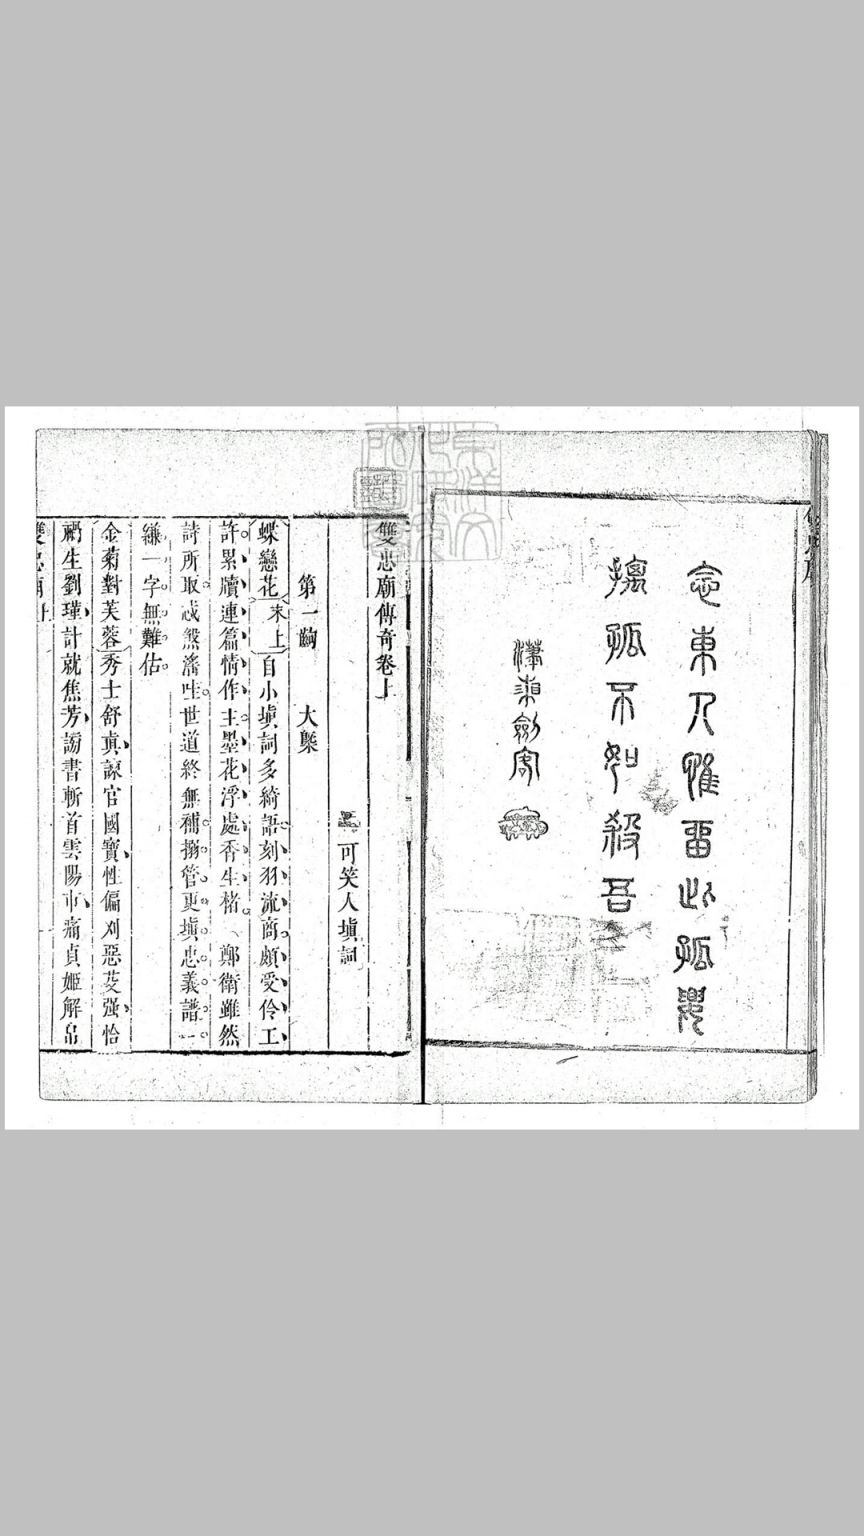 念東人惟留此孤嬰
撫孤不如殺吾
瀟湘劍客
雙忠廟傳奇卷上
可笑人塡詞
第一齣　大槩
蝶戀花末上自小塡詞多綺語刻羽流商頗受伶工
許累牘連篇情作主墨花浮處香生楮　鄭衞雖然
詩所取感煞滛哇世道終無補搦管更塡忠義譜一
縑一字無難估
金菊對芙蓉秀士舒眞諫官國寶性偏刈惡芟强恰
禍生劉瑾計就焦芳謗書斬首雲陽市痛貞姬解帛
雙忠廟